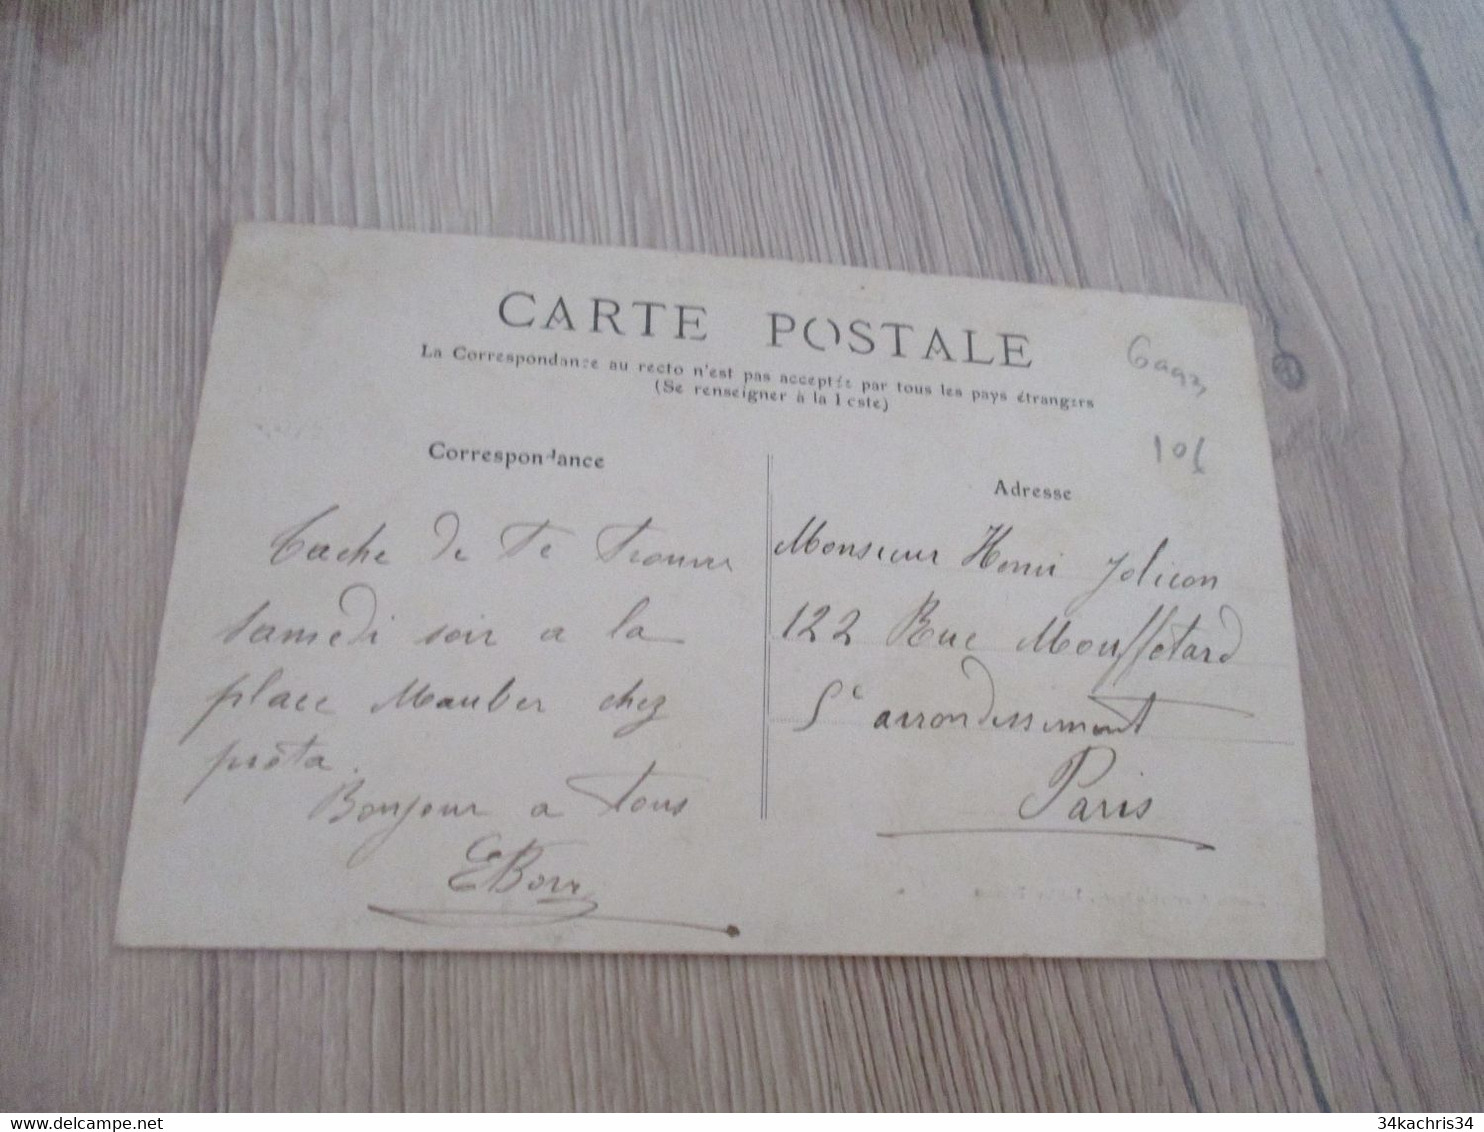 CARTE POSTALE
La Correspondance au recto n'est pas acceptée par tous les pays étrangers
(Se renseigner à la Poste)
10f
Correspondance
Adresse
Tache de Te Trouver
Samedi soir a la
place Mauber chez
prôta.
Bonjour a Tous
EBory
Monsieur Henri Jolicon
122 Rue Mouffetard
5e arrondissement
Paris
34kachris34
www.delcampe.net